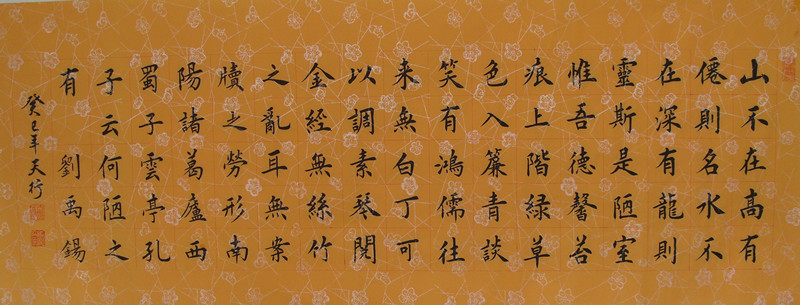 山不在高有
僊則名水不
在深有龍則
靈斯是陋室
惟吾德馨苔
痕上階緑草
色入簾青談
笑有鴻儒往
来無白丁可
以調素琴閱
金經無絲竹
之亂耳無案
牘之勞形南
陽諸葛廬西
蜀子雲亭孔
子云何陋之
有 劉禹錫
癸巳年天行